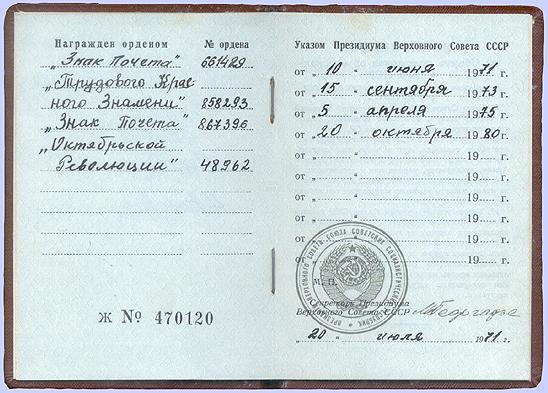 Награжден орденом
№ ордена
„Знак Почета" 661429
„Трудового Крас
ного Знамени" 858293
„Знак Почета" 867396
„Октябрьской
Революции" 48962
Ж № 470120
Указом Президиума Верховного Совета СССР
от „ 10 " июня 1971 г.
от „ 15 " сентября 1973 г.
от „ 5 " апреля 1975 г.
от „ 20 " октября 1980 г.
от „ " 19 г.
от „ " 19 г.
от „ " 19 г.
от „ " 19 г.
от „ " 19 г.
М. П.
Секретарь Президиума
Верховного Совета СССР МГеоргадзе
„ 20 " июля 1971 г.